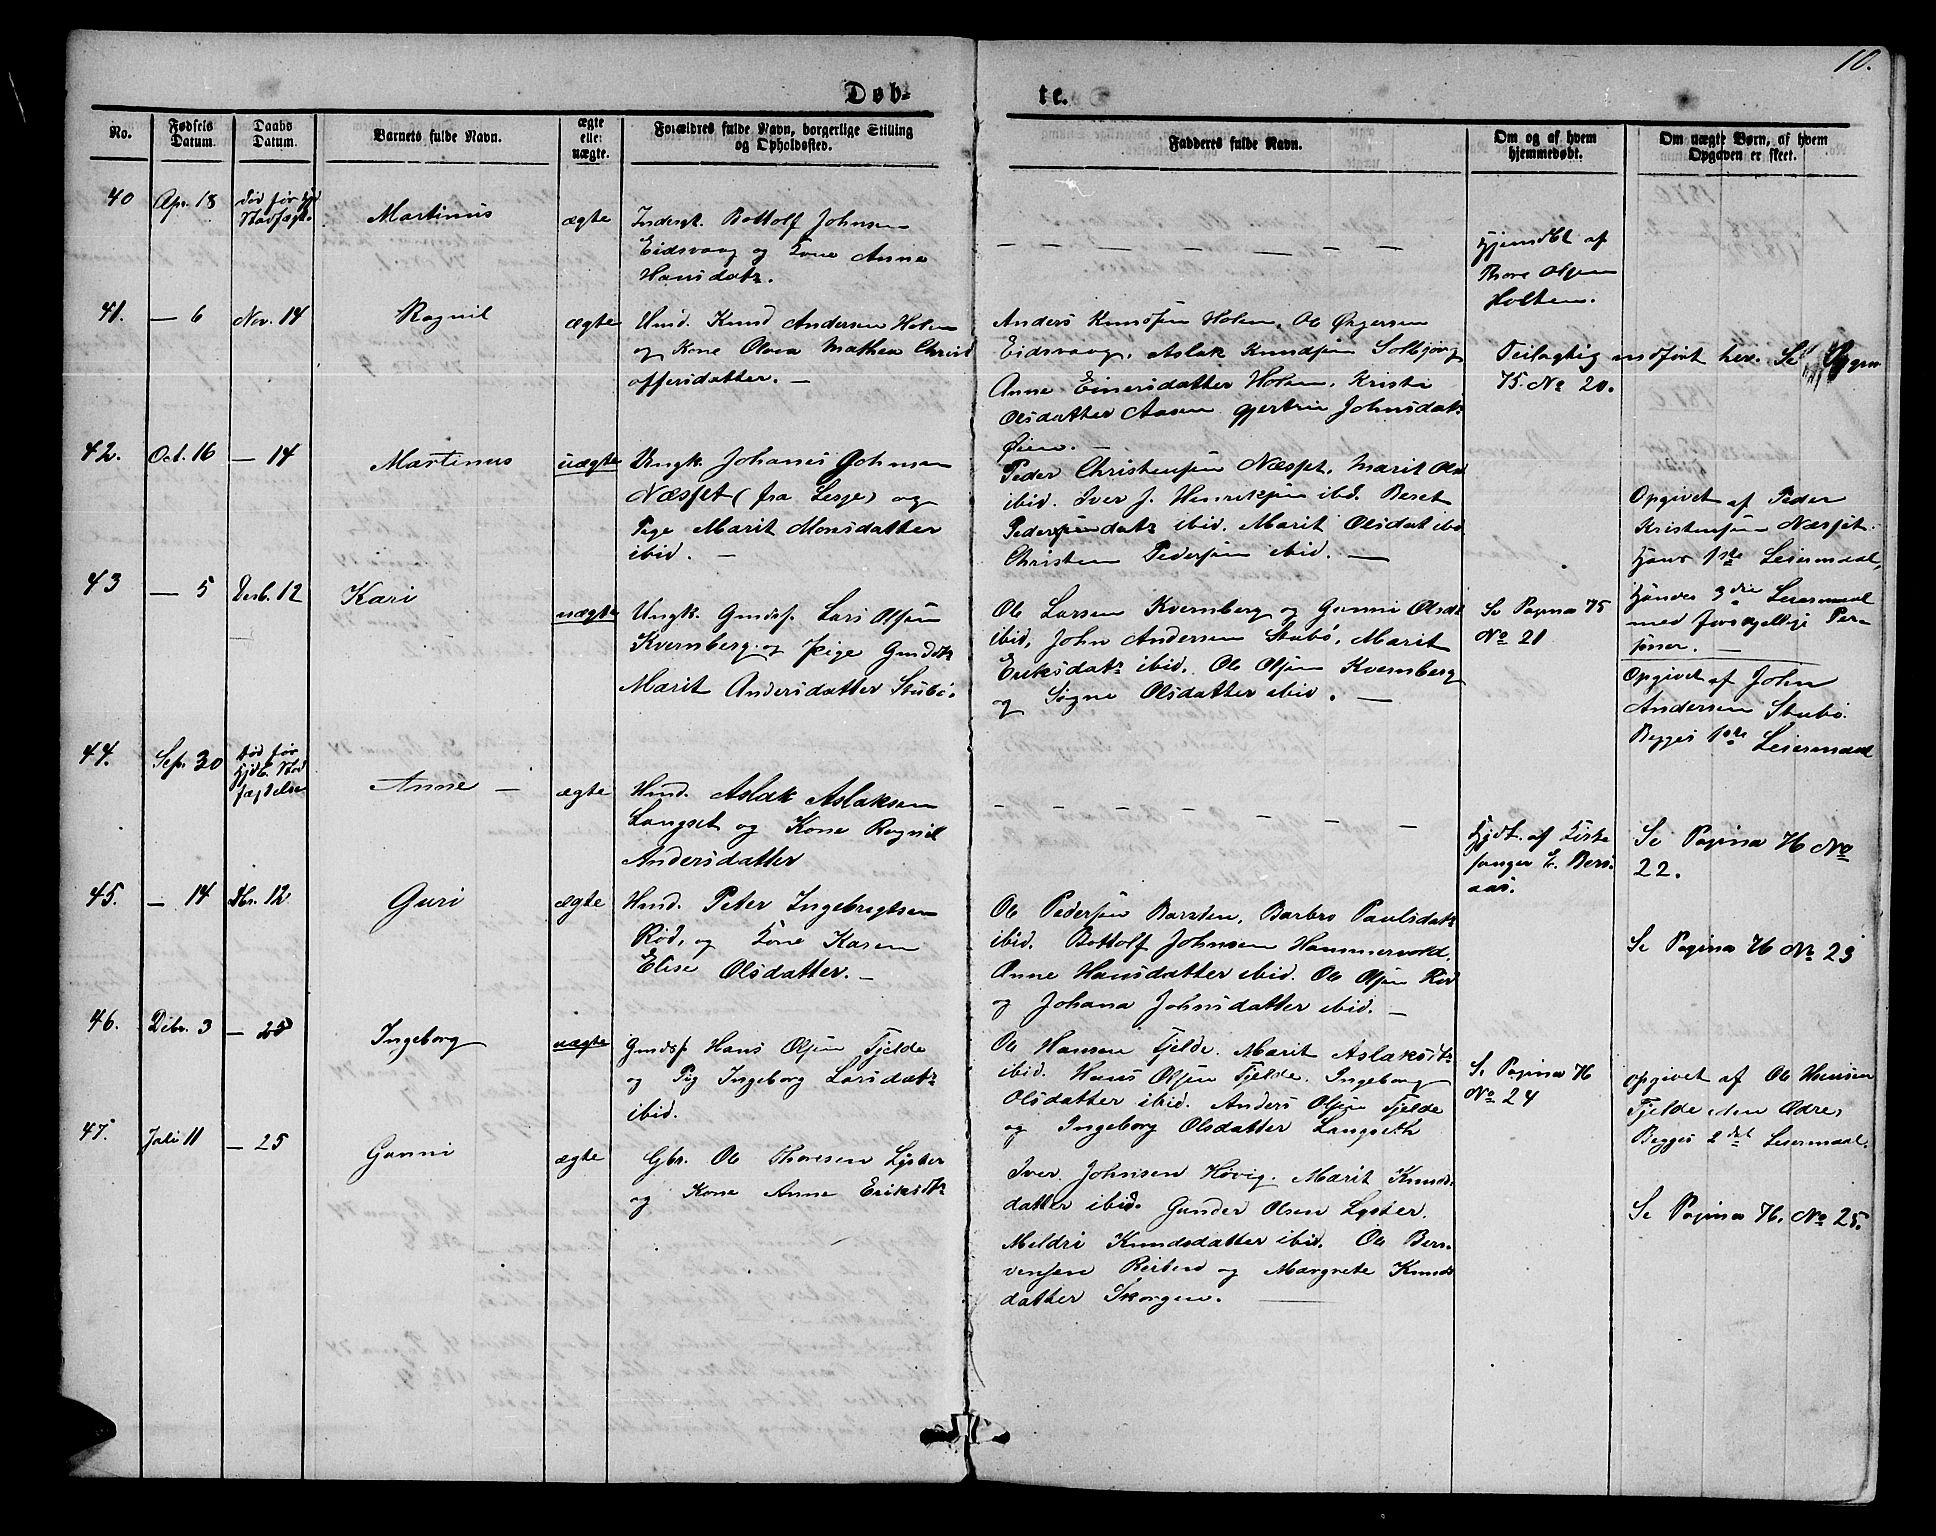 10.
Døb-
te.
No.
Fødsels Datum.
Daabs Datum.
Barnets fulde Navn.
ægte eller uægte.
Forældres fulde Navn, borgerlige Stilling og Opholdssted.
Faddernes fulde Navn.
Om og af hvem hjemmedøbt.
Om uægte Børn, af hvem Opgaven er skeet.
40
Apr. 18
død før
Martinus
ægte
Inderst. Bottolf Johnsen
Eidsvaag og Kone Anne
Hansdatr.
Hjemdbt af
Olsen
Holten.
41.
— 6
Nov. 14
Ragnil
ægte
Hmd. Knud Andersen Holen
og Kone Olava Mathea Christ
offersdatter. —
Anders Knudsen Holen, Ole
Eidsvaag, Aslak Knudsen Solbjørg
Anne Einersdatter Holen, Kristi
Olsdatter Aasen Gjertrin Johnsdatr
Øien.
Feilagtig indført her. Se Pagin
75. No 20.
42.
Oct. 16
— 14
Martinus
uægte
Ungk. Johanes Johnsen
Næsset (fra Lesje) og
Pige Marit Monsdatter
ibid. —
Peder Christensen Næsset, Marit Olsd
ibid. Iver J. Henriksen ibd. Beret
Pedersdatr ibid. Marit Olsdat ibd
Christen Pedersen ibid. —
Opgivet af Peder
Kristensen Næsset.
Hans 1ste Leiermaal,
Hendes 3die Leiermaal
med forskjellige Per-
soner. —
43
— 5
Desb. 12
Kari
uægte
Ungk. Gmdsf. Lars Olsen
Kvernberg og Pige Gmddtr
Marit Andersdatter Stubø.
Ole Larsen Kvernberg og Gunni Olsdtr
ibid, John Andersen Stubø, Marit
Eriksdatr ibid. Ole Olsen Kvernberg
og Signe Olsdatter ibid. —
Se Pagina 75
No 21
Opgivet af John
Andersen Stubø.
Begges 1ste Leiermaal
44.
Sep. 30
Død før
Hjdb. Stad
fæstelse
Anne —
ægte
Hmd. Aslak Aslaksen
Langset og Kone Ragnil
Andersdatter
— — — — — — — —
Hjdt. af Kirke
sanger E. Bers
aas.
Se Pagina 76 No
22.
45.
— 14
Dbr. 12
Guri
ægte
Hmd. Peter Ingebrigtsen
Rød, og Kone Karen
Elise Olsdatter. —
Ole Pedersen Barsten, Barbro Paulsdatr
ibid. Bottolf Johnsen Hammervold,
Anne Hansdatter ibid. Ole Olsen Rød
og Johana Johnsdatter ibid. —
Se Pagina 76 No 23
46.
Debr. 3
— 25
Ingeborg
uægte
Gmdsf Hans Olsen Fjelde
og Pig Ingeborg Larsdatr
ibid.
Ole Hansen Fjelde. Marit Aslaksdtr
ibid. Hans Olsen Fjelde. Ingeborg
Olsdatter ibid. Anders Olsen Fjelde
og Ingeborg Olsdatter Langseth
Se Pagina 76
No 24
opgivet af Ole Hansen
Fjelde den Ældre,
Begges 2det Leiermaal.
47.
Juli 11
— 25
Gunni
ægte
Gbr. Ole Thoresen Lyster
og Kone Anne Eriksdtr
Iver Johnsen Høvig. Marit Knuds
datter ibid. Gunder Olsen Lyster.
Meldri Knudsdatter ibid. Ole Bers
vensen Reiten og Margrete Knuds
datter Skorgen. —
Se Pagina 76. No 25.